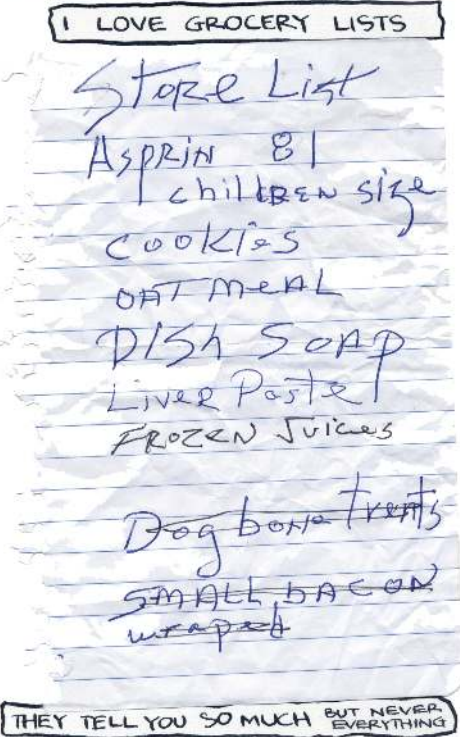 I LOVE GROCERY LISTS
Store List
Asprin 81
children size
cookies
OATMEAL
DISH SOAP
Liver Paste
FROZEN Juices
Dog bone treats
SMALL bACON
wraped
THEY TELL YOU SO MUCH BUT NEVER EVERYTHING